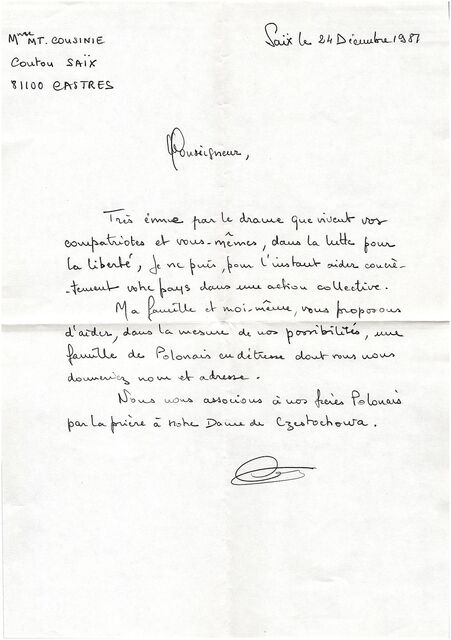 Mme MT. COUSINIE
Coutou SAÏX
81100 CASTRES
Saïx le 24 Décembre 1981
Monseigneur,
Très émue par le drame que vivent vos
compatriotes et vous-mêmes, dans la lutte pour
la liberté, je ne puis, pour l'instant aider concrè-
-tement votre pays dans une action collective.
Ma famille et moi-même, vous proposons
d'aider, dans la mesure de nos possibilités, une
famille de Polonais en détresse dont vous nous
donneriez nom et adresse.
Nous nous associons à nos frères Polonais
par la prière à Notre Dame de Czestochowa.